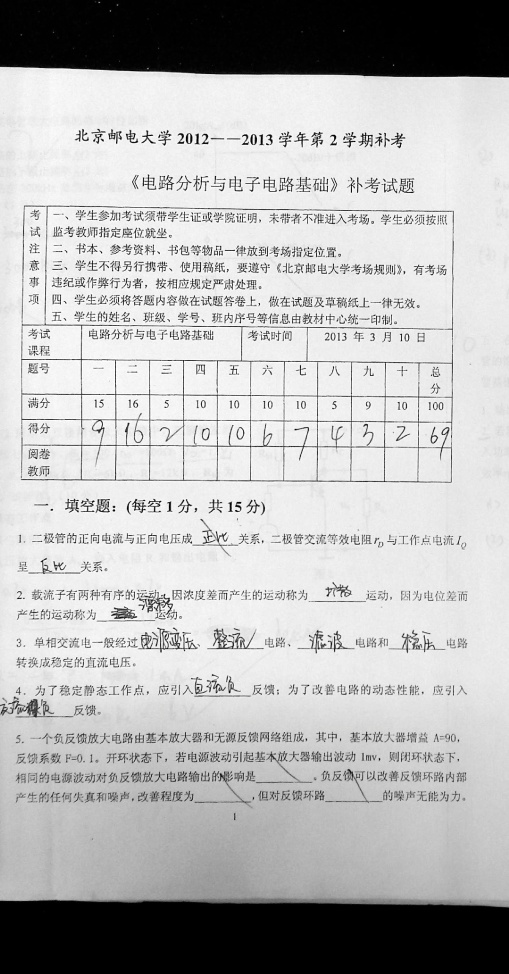 北京邮电大学 2012——2013 学年第 2 学期补考
《电路分析与电子电路基础》补考试题
考试注意事项
一、学生参加考试须带学生证或学院证明，未带者不准进入考场。学生必须按照
监考教师指定座位就坐。
二、书本、参考资料、书包等物品一律放到考场指定位置。
三、学生不得另行携带、使用稿纸，要遵守《北京邮电大学考场规则》，有考场
违纪或作弊行为者，按相应规定严肃处理。
四、学生必须将答题内容做在试题答卷上，做在试题及草稿纸上一律无效。
五、学生的姓名、班级、学号、班内序号等信息由教材中心统一印制。
考试课程 电路分析与电子电路基础 考试时间 2013 年 3 月 10 日
题号 一 二 三 四 五 六 七 八 九 十 总分
满分 15 16 5 10 10 10 10 5 9 10 100
得分 9 16 2 10 10 6 7 4 3 2 69
阅卷教师
一．填空题：(每空 1 分，共 15 分)
1. 二极管的正向电流与正向电压成 正比 关系，二极管交流等效电阻 rD 与工作点电流 IQ
呈 反比 关系。
2. 载流子有两种有序的运动，因浓度差而产生的运动称为 扩散 运动，因为电位差而
产生的运动称为 漂移 运动。
3. 单相交流电一般经过 电源变压、整流 电路、滤波 电路和 稳压 电路
转换成稳定的直流电压。
4. 为了稳定静态工作点，应引入 直流负 反馈；为了改善电路的动态性能，应引入
交流负 反馈。
5. 一个负反馈放大电路由基本放大器和无源反馈网络组成，其中，基本放大器增益 A=90，
反馈系数 F=0.1。开环状态下，若电源波动引起基本放大器输出波动 1mv，则闭环状态下，
相同的电源波动对负反馈放大电路输出的影响是 。负反馈可以改善反馈环路内部
产生的任何失真和噪声，改善程度为 ，但对反馈环路 的噪声无能为力。
1